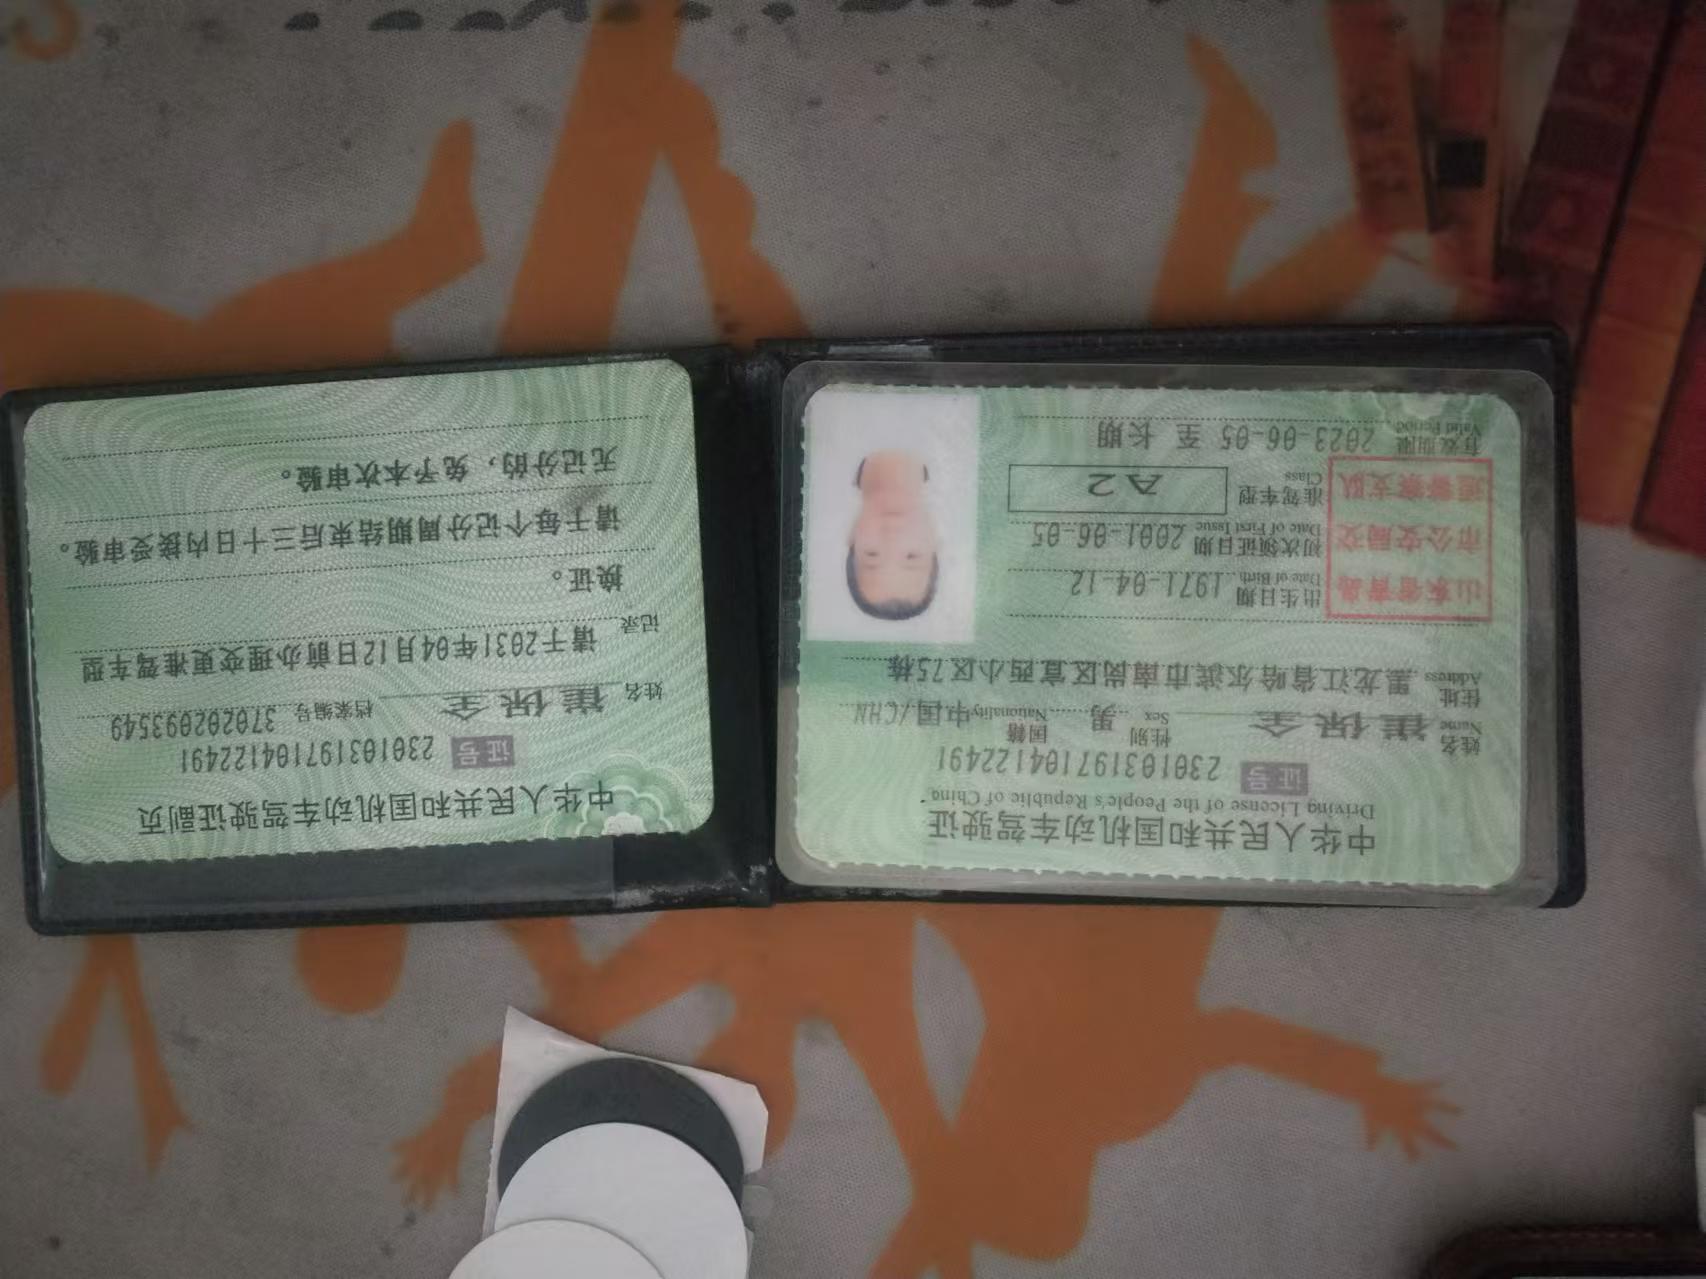 中华人民共和国机动车驾驶证
Driving License of the People's Republic of China
证号 230103197104122491
姓名 崔保全 性别 男 国籍 中国/CHN
Name Sex Nationality
住址 黑龙江省哈尔滨市南岗区宣西小区75栋
Address
山东省青岛
市公安局交
通警察支队
出生日期 1971-04-12
Date of Birth
初次领证日期 2001-06-05
Date of First Issue
准驾车型 A2
Class
有效期限 2023-06-05 至 长期
Valid Period
中华人民共和国机动车驾驶证副页
证号 230103197104122491
姓名 崔保全 档案编号 370202093549
记录 请于2031年04月12日前办理变更准驾车型
换证。
请于每个记分周期结束后三十日内接受审验。
无记分的，免予本次审验。